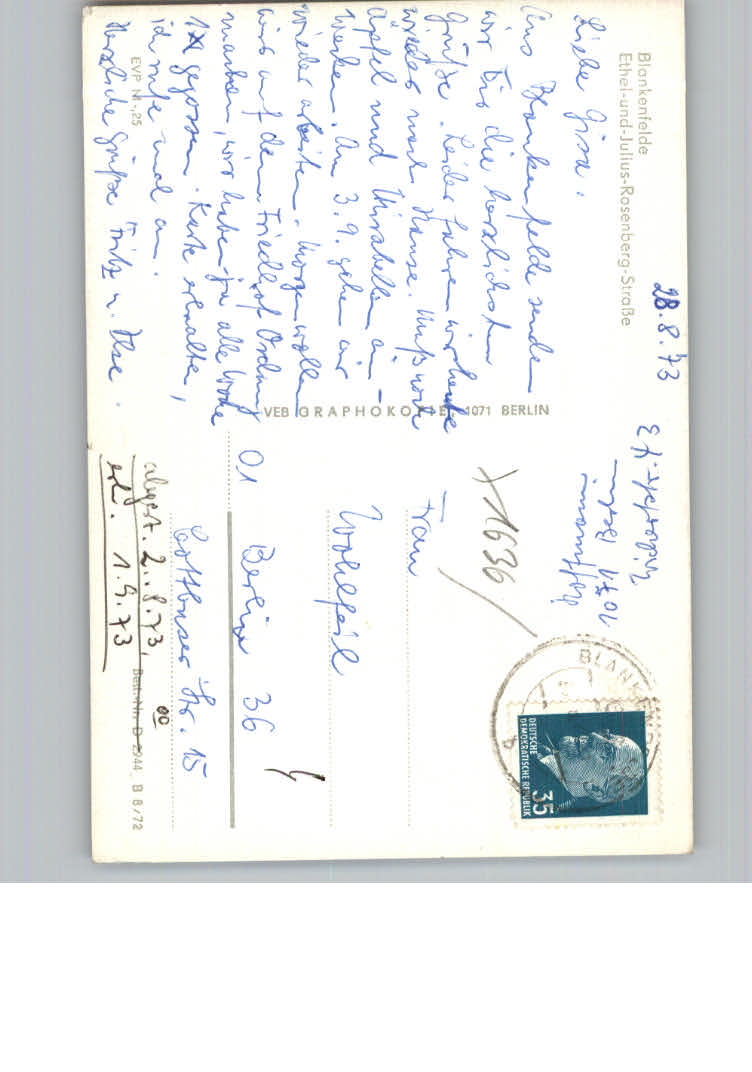 Blankenfelde
Ethel-und-Julius-Rosenberg-Straße
28.8.73
Liebe Gisa.
Aus Blankenfelde senden
wir Dir die herzlichsten
Grüße. Leider fahren wir heute
wieder nach Hause. Muß noch
Äpfel und Mirabellen ein-
wecken. Am 3.9. gehen wir
wieder arbeiten. Morgen wollen
wir auf dem Friedhof Ordnung
machen, wir haben ja alle Woche
1x gegossen. Karte erhalten,
ich rufe mal an.
Herzliche Grüße Fritz u. Ilse.
EVP M -,25
VEB GRAPHOKOPIE 1071 BERLIN
1071 Berlin
X 1636
BLANKENFELDE
DEUTSCHE
DEMOKRATISCHE REPUBLIK
35
Frau
Wohlfeil
01 Berlin 36
Cottbuser Str. 15
abgest. 28.8.73,
erh. 1.9.73
Best.-Nr. D 2944 B 8/72